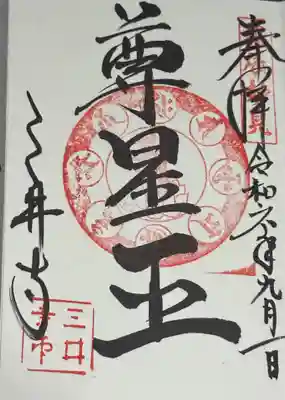 奉拝
令和六年九月一日
尊星王
三井寺
三井
寺印